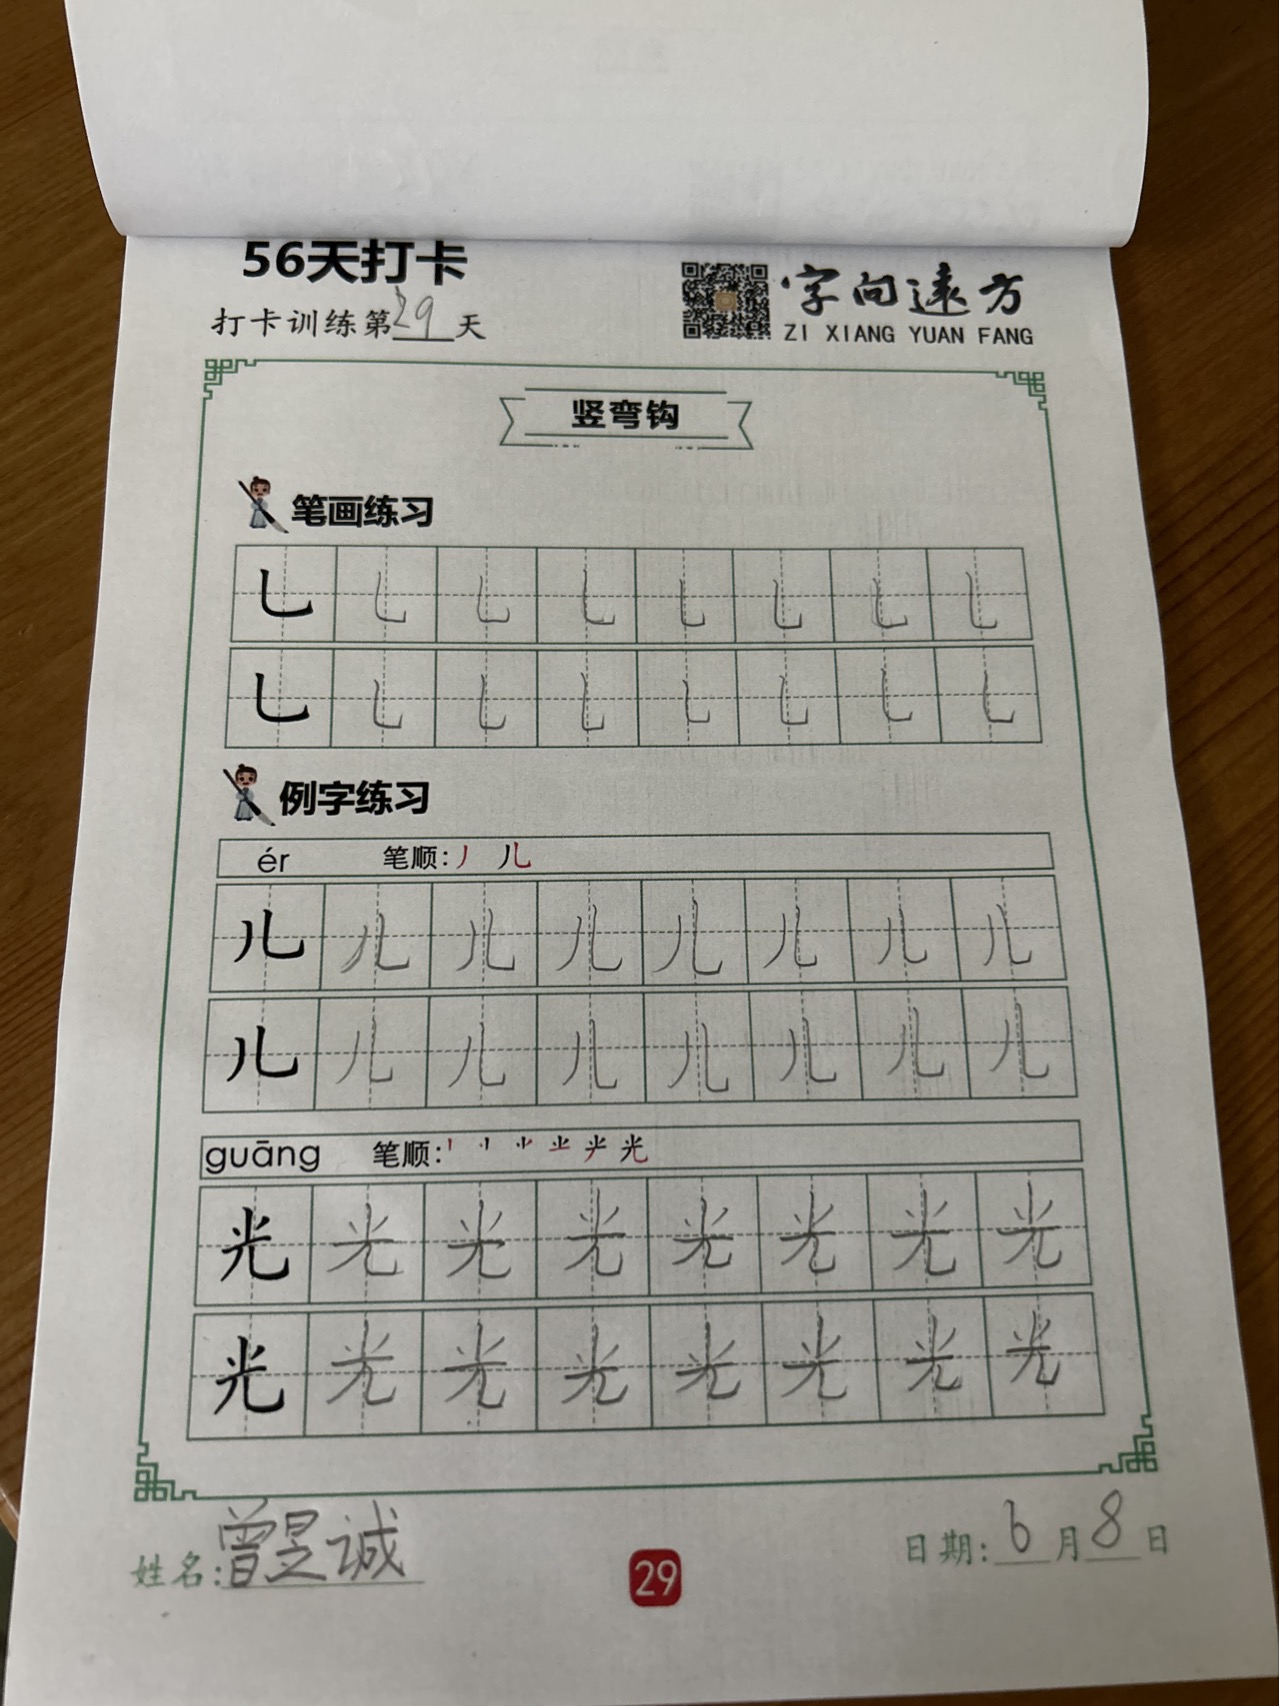 56天打卡
打卡训练第29天
字向遠方
ZI XIANG YUAN FANG
竖弯钩
笔画练习
乚 乚 乚 乚 乚 乚 乚 乚
乚 乚 乚 乚 乚 乚 乚 乚
例字练习
ér 笔顺: 丿 儿
儿 儿 儿 儿 儿 儿 儿 儿
儿 儿 儿 儿 儿 儿 儿 儿
guāng 笔顺: 光
光 光 光 光 光 光 光 光
光 光 光 光 光 光 光 光
姓名:曾昱诚
29
日期:6月8日